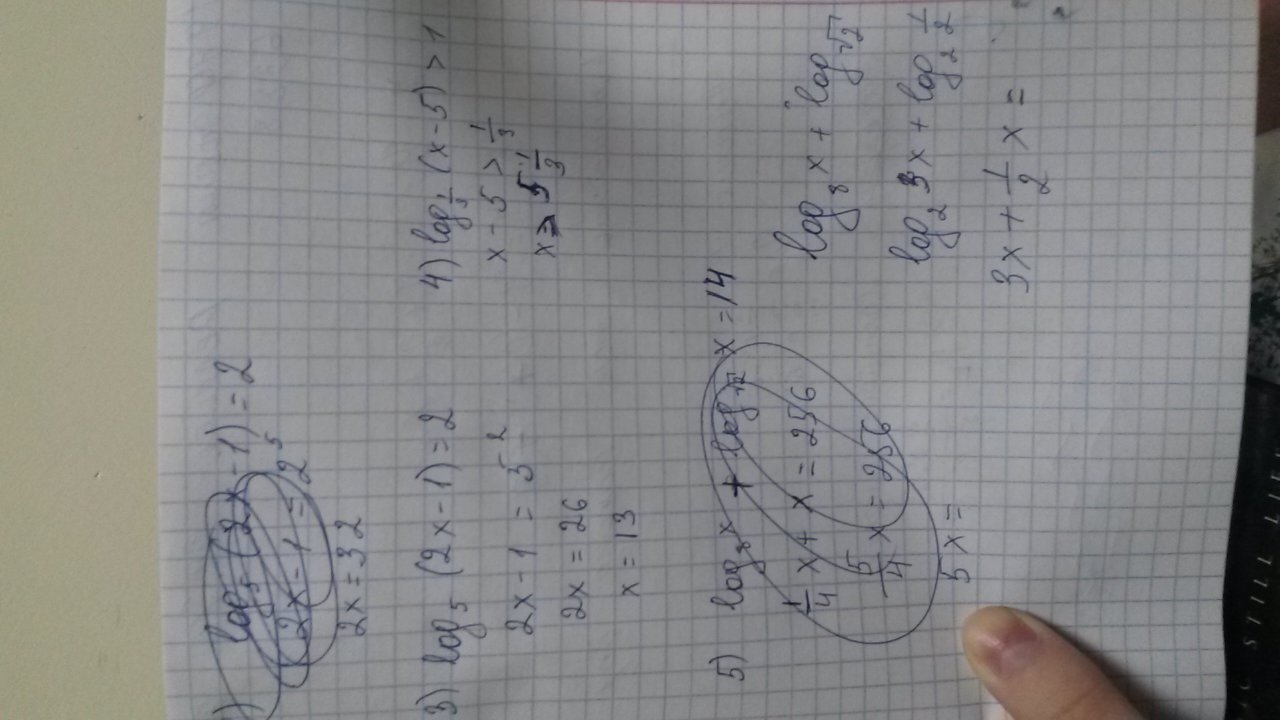 log₅ (2x - 1) = 2
(2x - 1 = 2⁵
2x = 32
3) log₅ (2x - 1) = 2
2x - 1 = 5²
2x = 26
x = 13
4) log_{1/3} (x - 5) > 1
x - 5 > 1/3
x > 5 1/3
5) log₈ x + log_{√2} x = 14
1/4 x + x = 256
5/4 x = 256
5x =
log₈ x + log_{√2}
log₂ 3x + log₂ 1/2
3x + 1/2 x =